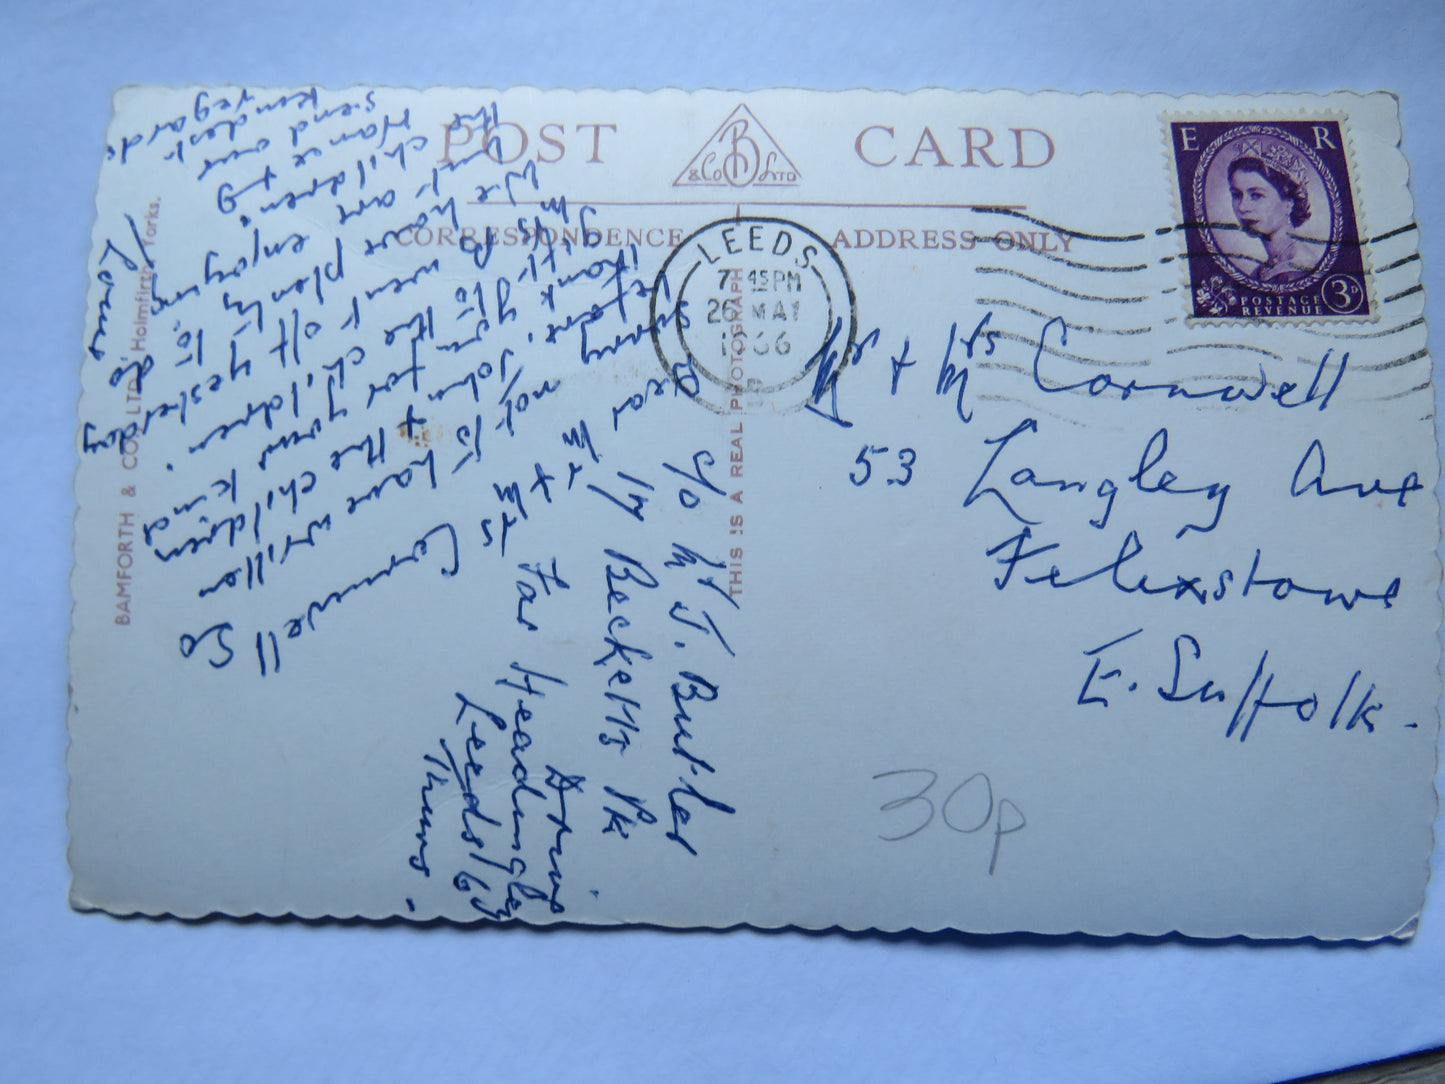 POST CARD
B & Co LTD
CORRESPONDENCE
ADDRESS ONLY
BAMFORTH & CO. LTD. Holmfirth Yorks.
THIS IS A REAL PHOTOGRAPH
E R
POSTAGE
REVENUE
3D
LEEDS
7 45 PM
26 MAY
66
Mr + Mrs Cornwell
53 Langley Ave
Felixstowe
E. Suffolk.
30p
c/o Mr J. Butler
17 Becketts Pk
Drive
Far Headingley
Leeds 16
Thurs.
Dear Mr + Mrs Cornwell
Sorry not to have written so
before, John + the children
thank you for your kind
gift to the children.
went off yesterday
We have plenty to do
but are enjoying
the children
send our
kindest
regards
Love